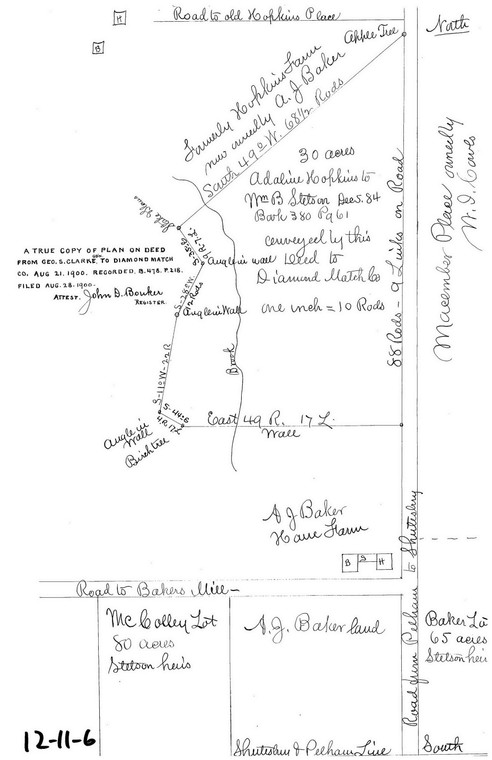 Road to old Hopkins Place
H
B
Apple Tree
North
Formerly Hopkins Farm
now owned by A. J Baker
South 49° W. 68 1/2 Rods
30 acres
Adaline Hopkins to
Wm B Stetson Dec 5. 84
Book 380 Pg 61
conveyed by this
Deed to
Diamond Match Co
one inch = 10 Rods
Stake & Stones
A TRUE COPY OF PLAN ON DEED
FROM GEO. S. CLARKE TO DIAMOND MATCH
CO. AUG 21, 1900. RECORDED, B. 478. P. 218.
FILED AUG. 28. 1900.
ATTEST, John D. Bouker
REGISTER.
S-35-E
9 R-7 L
Angle in wall
S-28° W.
12 Rods
Angle in Wall
S-11° W-22 R
Brook
S-44° E
4 R. 17 L
Angle in
Wall
Birch tree
East 49 R. 17 L.
Wall
88 Rods - 9 Links on Road
Macomber Place owned by
A J Baker
Home Farm
B
S
H
Road to Bakers Mill
Road from Pelham to Shutesbury
McColley Lot
80 acres
Stetson heirs
A. J. Baker land
Baker Lo
65 acres
Stetson hei
12-11-6
Shutesbury & Pelham Line
South